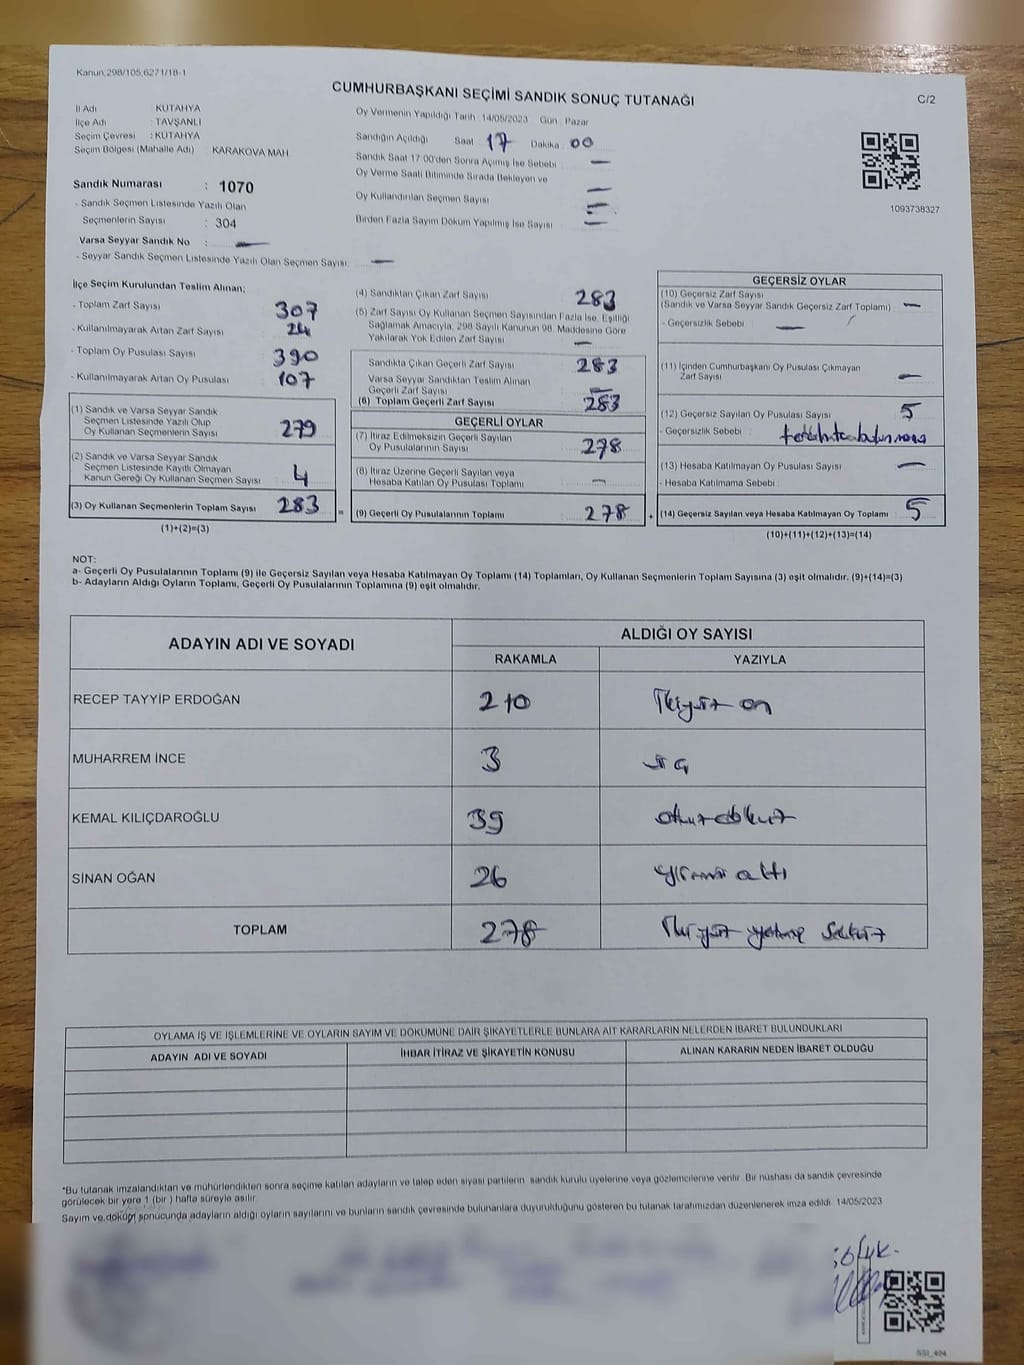 Kanun:298/105,6271/18-1
CUMHURBAŞKANI SEÇİMİ SANDIK SONUÇ TUTANAĞI
C/2
İl Adı KÜTAHYA
İlçe Adı : TAVŞANLI
Seçim Çevresi : KÜTAHYA
Seçim Bölgesi (Mahalle Adı) : KARAKOVA MAH
Sandık Numarası : 1070
- Sandık Seçmen Listesinde Yazılı Olan
Seçmenlerin Sayısı : 304
Varsa Seyyar Sandık No : —
- Seyyar Sandık Seçmen Listesinde Yazılı Olan Seçmen Sayısı: —
Oy Vermenin Yapıldığı Tarih 14/05/2023 Gün : Pazar
Sandığın Açıldığı Saat 17 Dakika 00
Sandık Saat 17:00'den Sonra Açımış İse Sebebi —
Oy Verme Saati Bitiminde Sırada Bekleyen ve
Oy Kullandırılan Seçmen Sayısı —
Birden Fazla Sayım Döküm Yapılmış İse Sayısı —
1093738327
İlçe Seçim Kurulundan Teslim Alınan;
- Toplam Zarf Sayısı 307
- Kullanılmayarak Artan Zarf Sayısı 24
- Toplam Oy Pusulası Sayısı 390
- Kullanılmayarak Artan Oy Pusulası 107
(1) Sandık ve Varsa Seyyar Sandık
Seçmen Listesinde Yazılı Olup
Oy Kullanan Seçmenlerin Sayısı 279
(2) Sandık ve Varsa Seyyar Sandık
Seçmen Listesinde Kayıtlı Olmayan
Kanun Gereği Oy Kullanan Seçmen Sayısı 4
(3) Oy Kullanan Seçmenlerin Toplam Sayısı 283
(1)+(2)=(3)
(4) Sandıktan Çıkan Zarf Sayısı 283
(5) Zarf Sayısı Oy Kullanan Seçmen Sayısından Fazla İse, Eşitliği
Sağlamak Amacıyla, 298 Sayılı Kanunun 98. Maddesine Göre
Yakılarak Yok Edilen Zarf Sayısı —
Sandıkta Çıkan Geçerli Zarf Sayısı 283
Varsa Seyyar Sandıktan Teslim Alınan
Geçerli Zarf Sayısı —
(6) Toplam Geçerli Zarf Sayısı 283
GEÇERLİ OYLAR
(7) İtiraz Edilmeksizin Geçerli Sayılan
Oy Pusulalarının Sayısı 278
(8) İtiraz Üzerine Geçerli Sayılan veya
Hesaba Katılan Oy Pusulası Toplamı —
= (9) Geçerli Oy Pusulalarının Toplamı 278 +
GEÇERSİZ OYLAR
(10) Geçersiz Zarf Sayısı
(Sandık ve Varsa Seyyar Sandık Geçersiz Zarf Toplamı) —
- Geçersizlik Sebebi : —
(11) İçinden Cumhurbaşkanı Oy Pusulası Çıkmayan
Zarf Sayısı —
(12) Geçersiz Sayılan Oy Pusulası Sayısı 5
- Geçersizlik Sebebi :
(13) Hesaba Katılmayan Oy Pusulası Sayısı —
- Hesaba Katılmama Sebebi :
(14) Geçersiz Sayılan veya Hesaba Katılmayan Oy Toplamı 5
(10)+(11)+(12)+(13)=(14)
NOT:
a- Geçerli Oy Pusulalarının Toplamı (9) ile Geçersiz Sayılan veya Hesaba Katılmayan Oy Toplamı (14) Toplamları, Oy Kullanan Seçmenlerin Toplam Sayısına (3) eşit olmalıdır. (9)+(14)=(3)
b- Adayların Aldığı Oyların Toplamı, Geçerli Oy Pusulalarının Toplamına (9) eşit olmalıdır.
ADAYIN ADI VE SOYADI ALDIĞI OY SAYISI
RAKAMLA YAZIYLA
RECEP TAYYİP ERDOĞAN 210 İkiyüz on
MUHARREM İNCE 3 üç
KEMAL KILIÇDAROĞLU 39 otuzdokuz
SİNAN OĞAN 26 yirmi altı
TOPLAM 278 İkiyüz yetmiş sekiz
OYLAMA İŞ VE İŞLEMLERİNE VE OYLARIN SAYIM VE DÖKÜMÜNE DAİR ŞİKAYETLERLE BUNLARA AİT KARARLARIN NELERDEN İBARET BULUNDUKLARI
ADAYIN ADI VE SOYADI İHBAR İTİRAZ VE ŞİKAYETİN KONUSU ALINAN KARARIN NEDEN İBARET OLDUĞU
*Bu tutanak imzalandıktan ve mühürlendikten sonra seçime katılan adayların ve talep eden siyasi partilerin sandık kurulu üyelerine veya gözlemcilerine verilir. Bir nüshası da sandık çevresinde
görülecek bir yere 1 (bir ) hafta süreyle asılır.
Sayım ve döküm sonucunda adayların aldığı oyların sayılarını ve bunların sandık çevresinde bulunanlara duyurulduğunu gösteren bu tutanak tarafımızdan düzenlenerek imza edildi. 14/05/2023